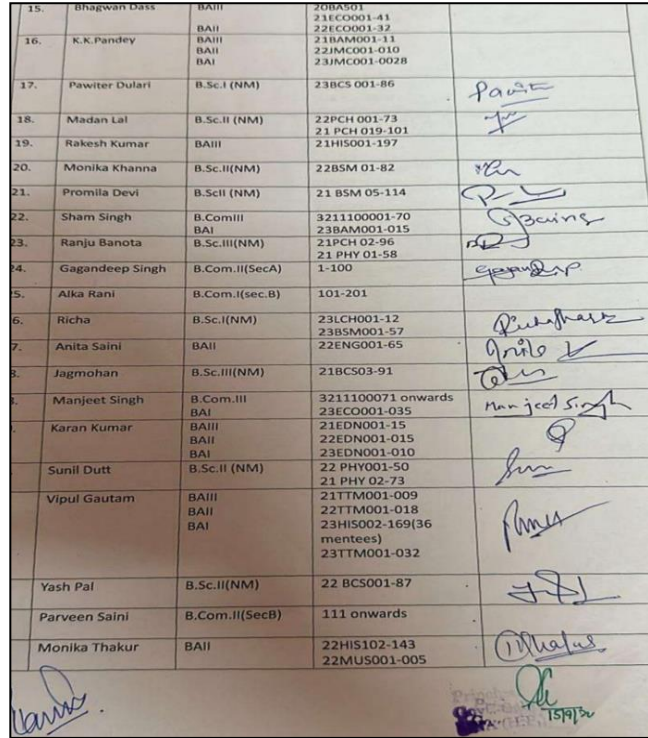 15. Bhagwan Dass BAIII 20BA501
21ECO001-41
BAII 22ECO001-32
16. K.K.Pandey BAIII 21BAM001-11
BAII 22JMC001-010
BAI 23JMC001-0028
17. Pawiter Dulari B.Sc.I (NM) 23BCS 001-86
18. Madan Lal B.Sc.II (NM) 22PCH 001-73
21 PCH 019-101
19. Rakesh Kumar BAIII 21HIS001-197
20. Monika Khanna B.Sc.II(NM) 22BSM 01-82
21. Promila Devi B.ScII (NM) 21 BSM 05-114
22. Sham Singh B.ComIII 3211100001-70
BAI 23BAM001-015
23. Ranju Banota B.Sc.III(NM) 21PCH 02-96
21 PHY 01-58
24. Gagandeep Singh B.Com.II(SecA) 1-100
5. Alka Rani B.Com.I(sec.B) 101-201
6. Richa B.Sc.I(NM) 23LCH001-12
23BSM001-57
7. Anita Saini BAII 22ENG001-65
8. Jagmohan B.Sc.III(NM) 21BCS03-91
Manjeet Singh B.Com.III 3211100071 onwards Manjeet Singh
BAI 23ECO001-035
Karan Kumar BAIII 21EDN001-15
BAII 22EDN001-015
BAI 23EDN001-010
Sunil Dutt B.Sc.II (NM) 22 PHY001-50
21 PHY 02-73
Vipul Gautam BAIII 21TTM001-009
BAII 22TTM001-018
BAI 23HIS002-169(36
mentees)
23TTM001-032
Yash Pal B.Sc.II(NM) 22 BCS001-87
Parveen Saini B.Com.II(SecB) 111 onwards
Monika Thakur BAII 22HIS102-143
22MUS001-005